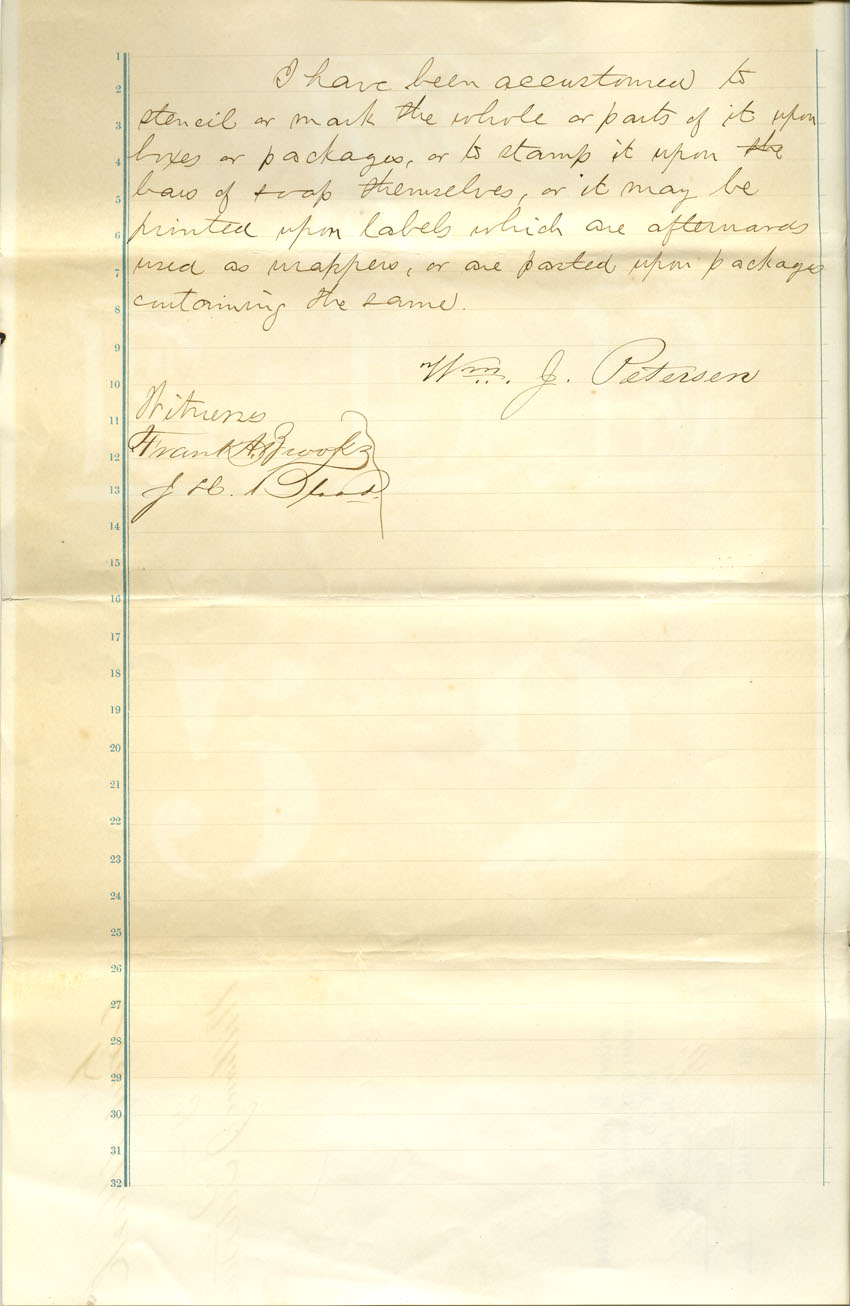 1
2
3
4
5
6
7
8
9
10
11
12
13
14
15
16
17
18
19
20
21
22
23
24
25
26
27
28
29
30
31
32
I have been accustomed to
stencil or mark the whole or parts of it upon
boxes or packages, or to stamp it upon the
bars of soap themselves, or it may be
printed upon labels which are afterwards
used as wrappers, or are pasted upon packages
containing the same.
Wm. J. Petersen
Witness
Frank A. Brooks
J H. Blood